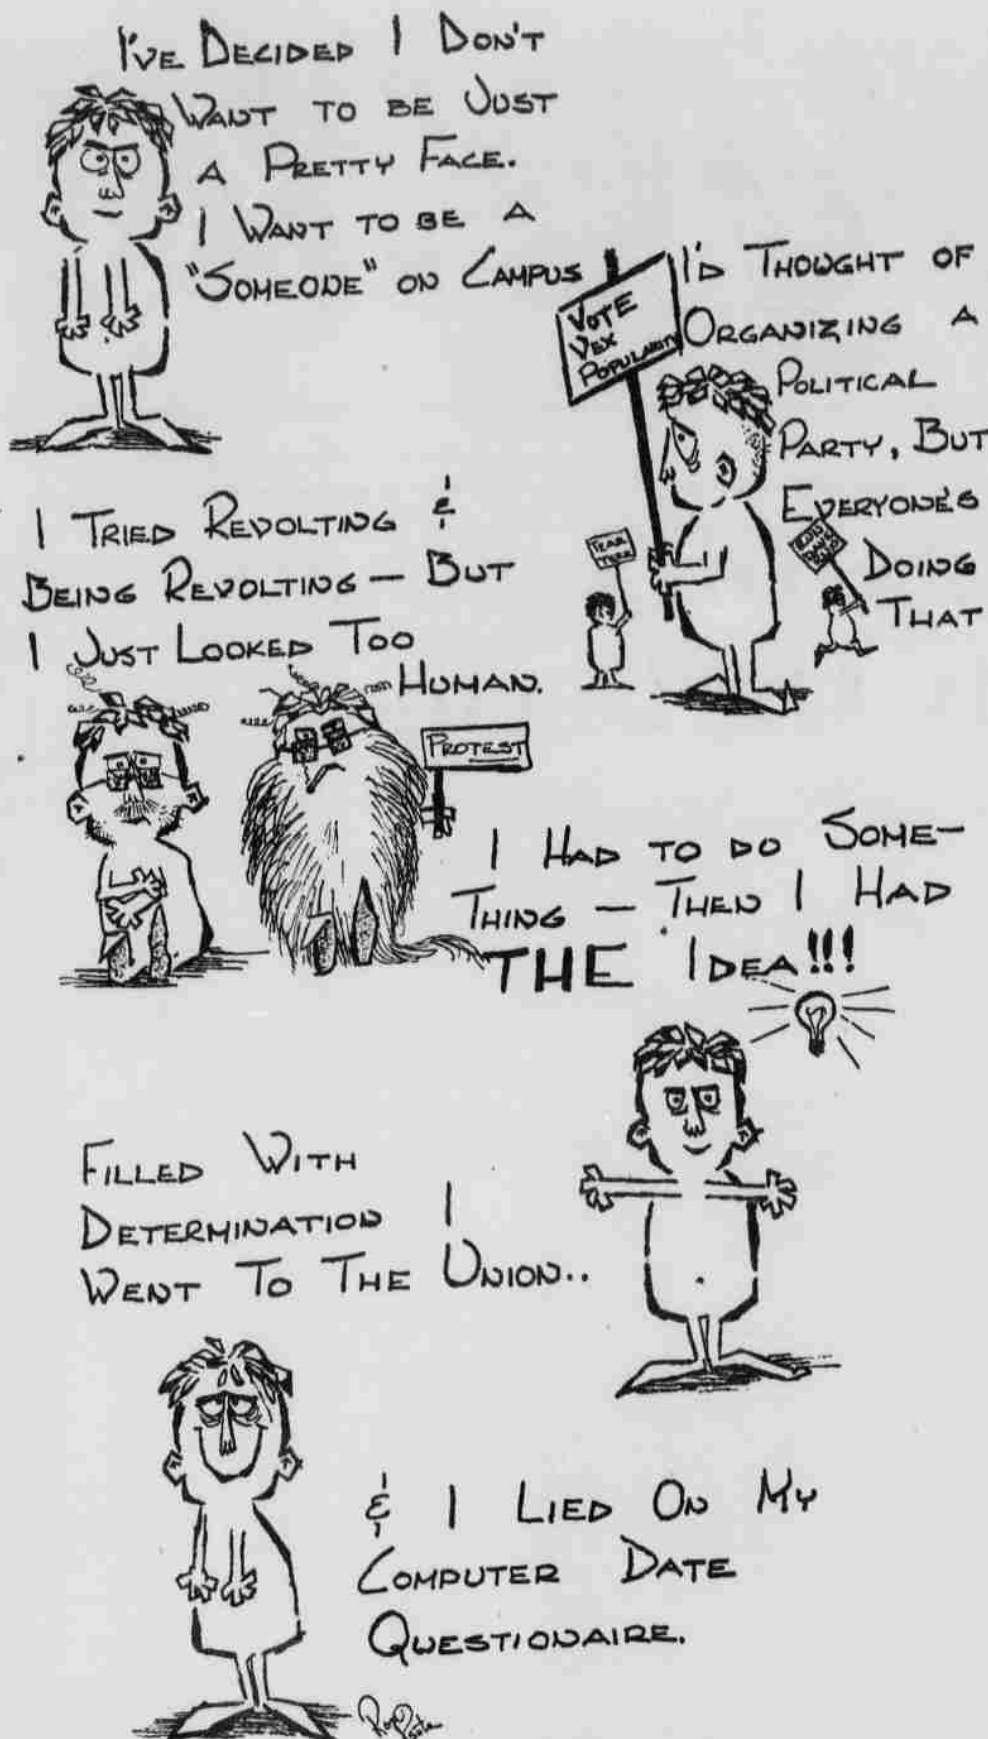 I'VE DECIDED I DON'T
WANT TO BE JUST
A PRETTY FACE.
I WANT TO BE A
"SOMEONE" ON CAMPUS
I'D THOUGHT OF
ORGANIZING A
POLITICAL
PARTY, BUT
EVERYONE'S
DOING
THAT
VOTE
VEX
POPULARITY
I TRIED REVOLTING &
BEING REVOLTING — BUT
I JUST LOOKED TOO
HUMAN.
PROTEST
I HAD TO DO SOME-
THING — THEN I HAD
THE IDEA!!!
FILLED WITH
DETERMINATION I
WENT TO THE UNION..
& I LIED ON MY
COMPUTER DATE
QUESTIONAIRE.